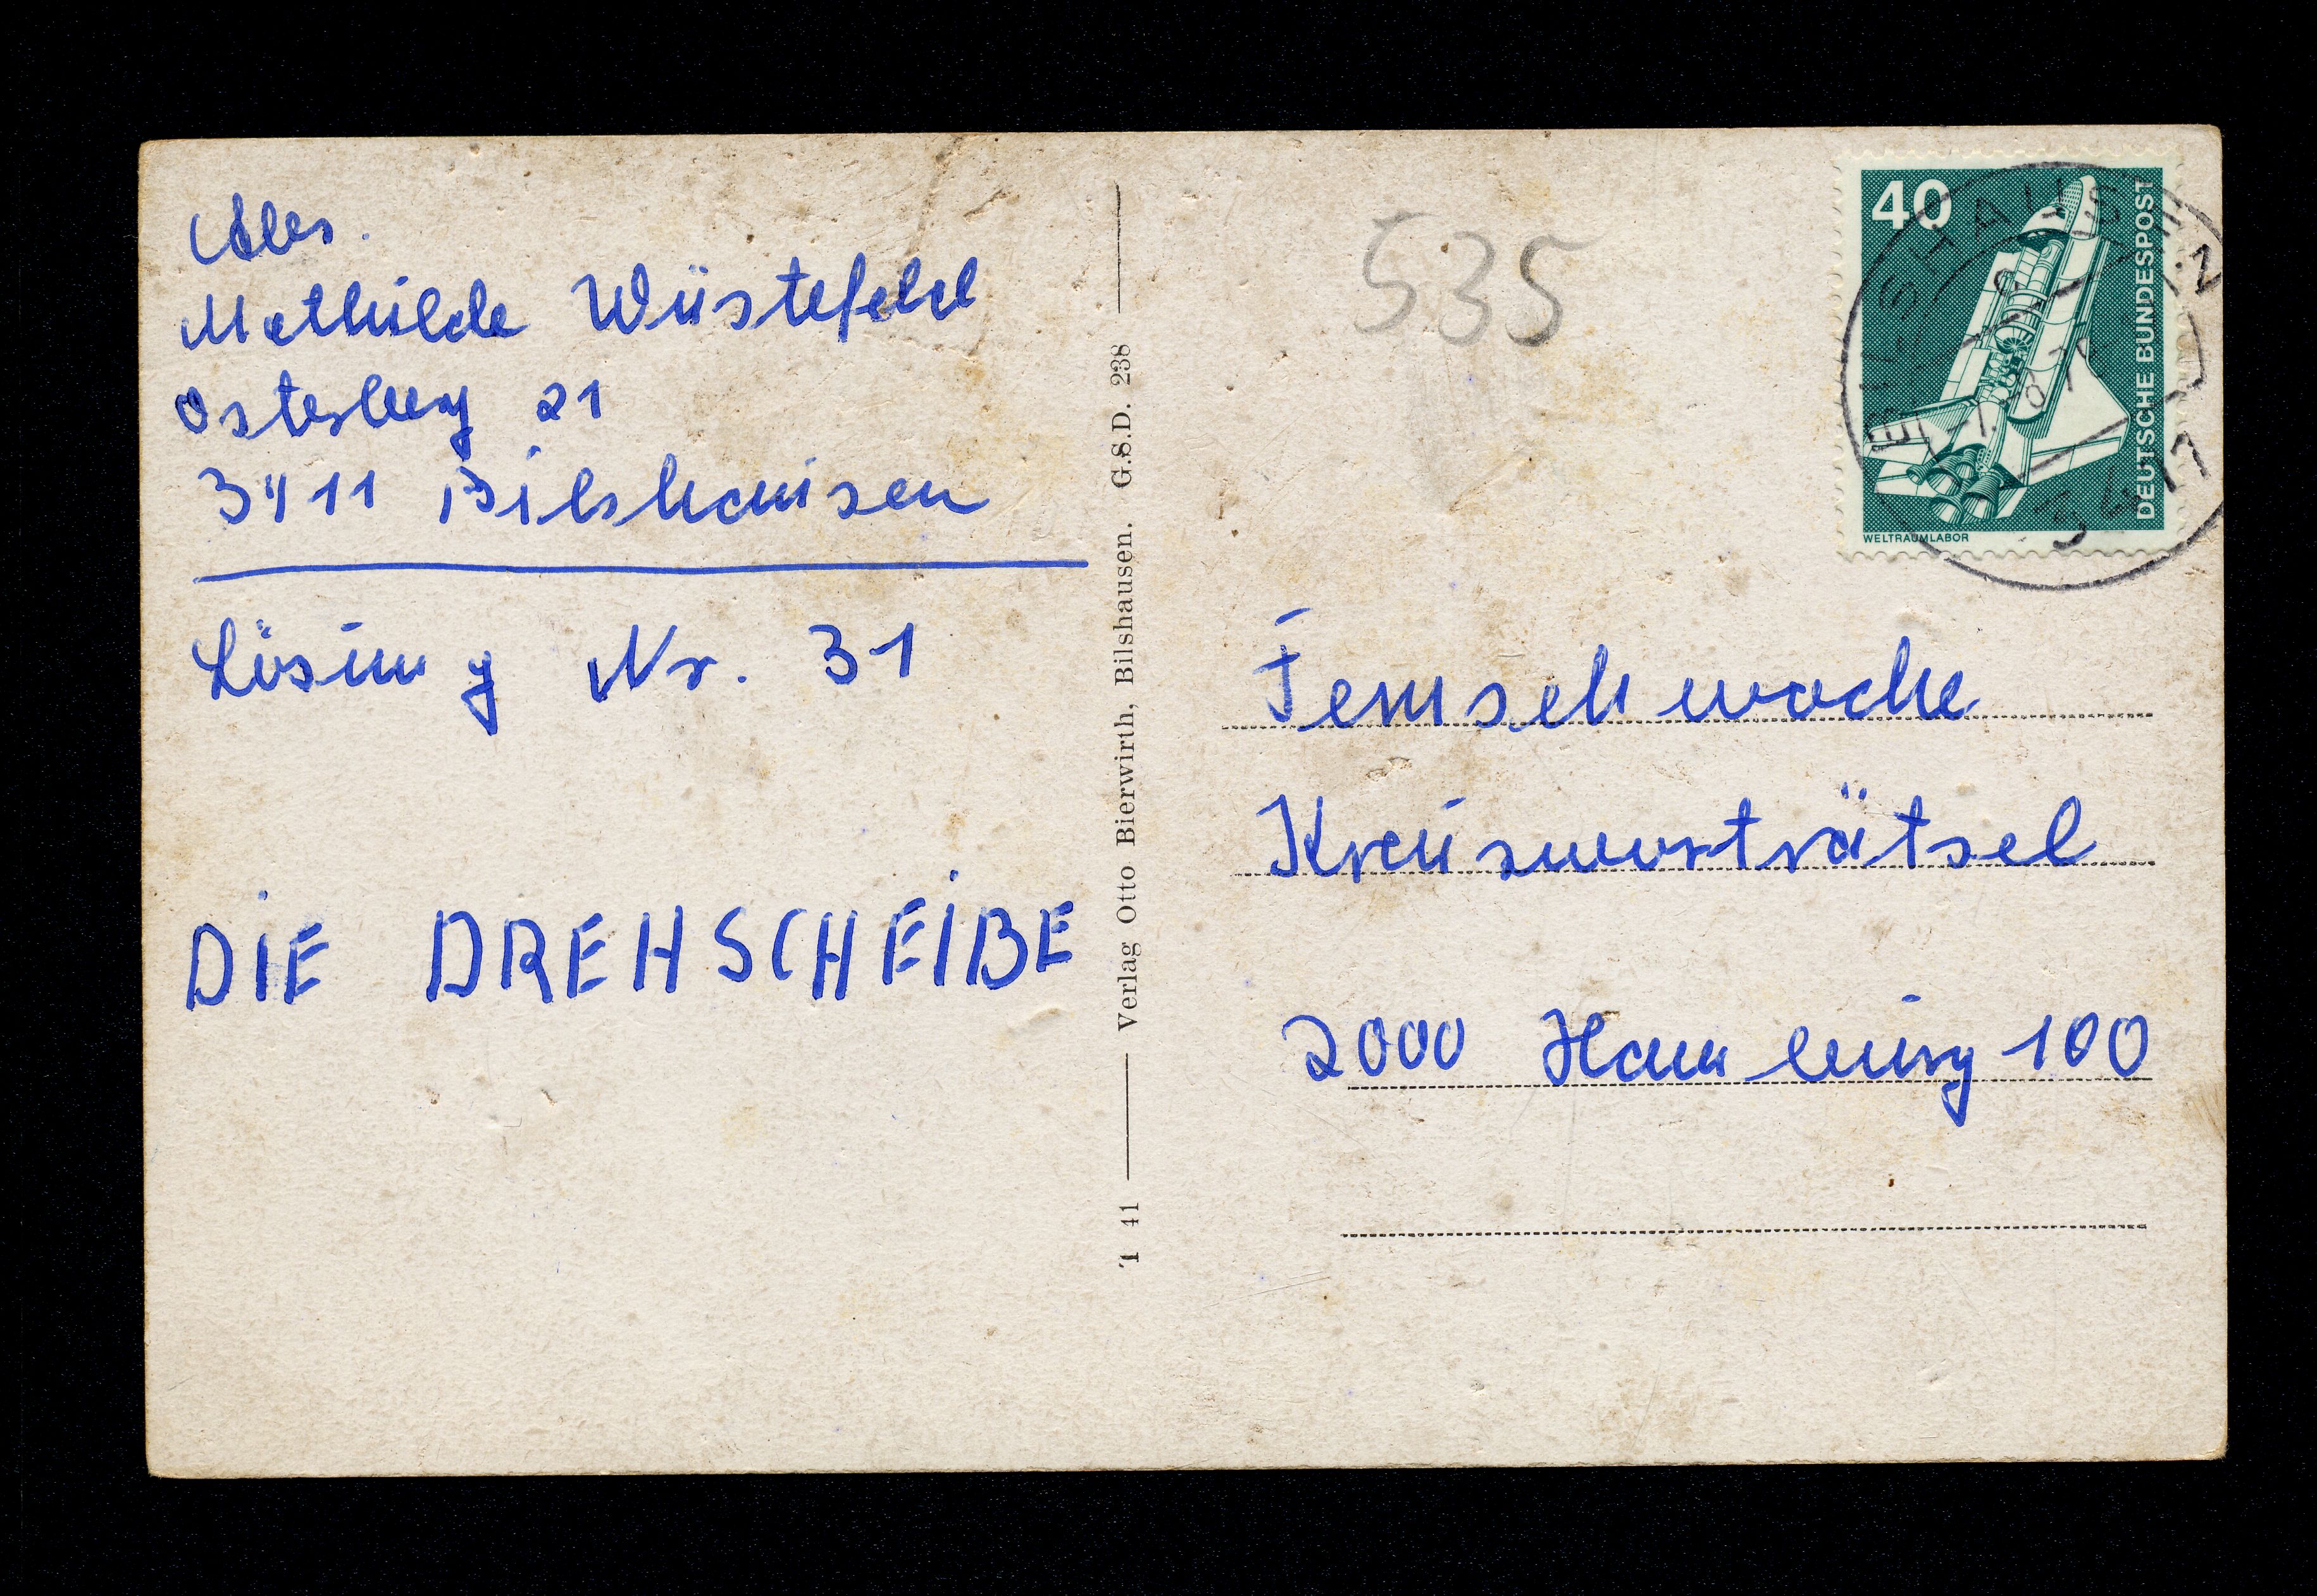 Abs.
Mathilde Wüstefeld
Osterberg 21
3411 Bilshausen
Lösung Nr. 31
DIE DREHSCHEIBE
T 41 Verlag Otto Bierwirth, Bilshausen. G.S.D. 238
535
40
DEUTSCHE BUNDESPOST
WELTRAUMLABOR
BILSHAUSEN
3411
Fernsehwoche
Kreuzworträtsel
2000 Hamburg 100